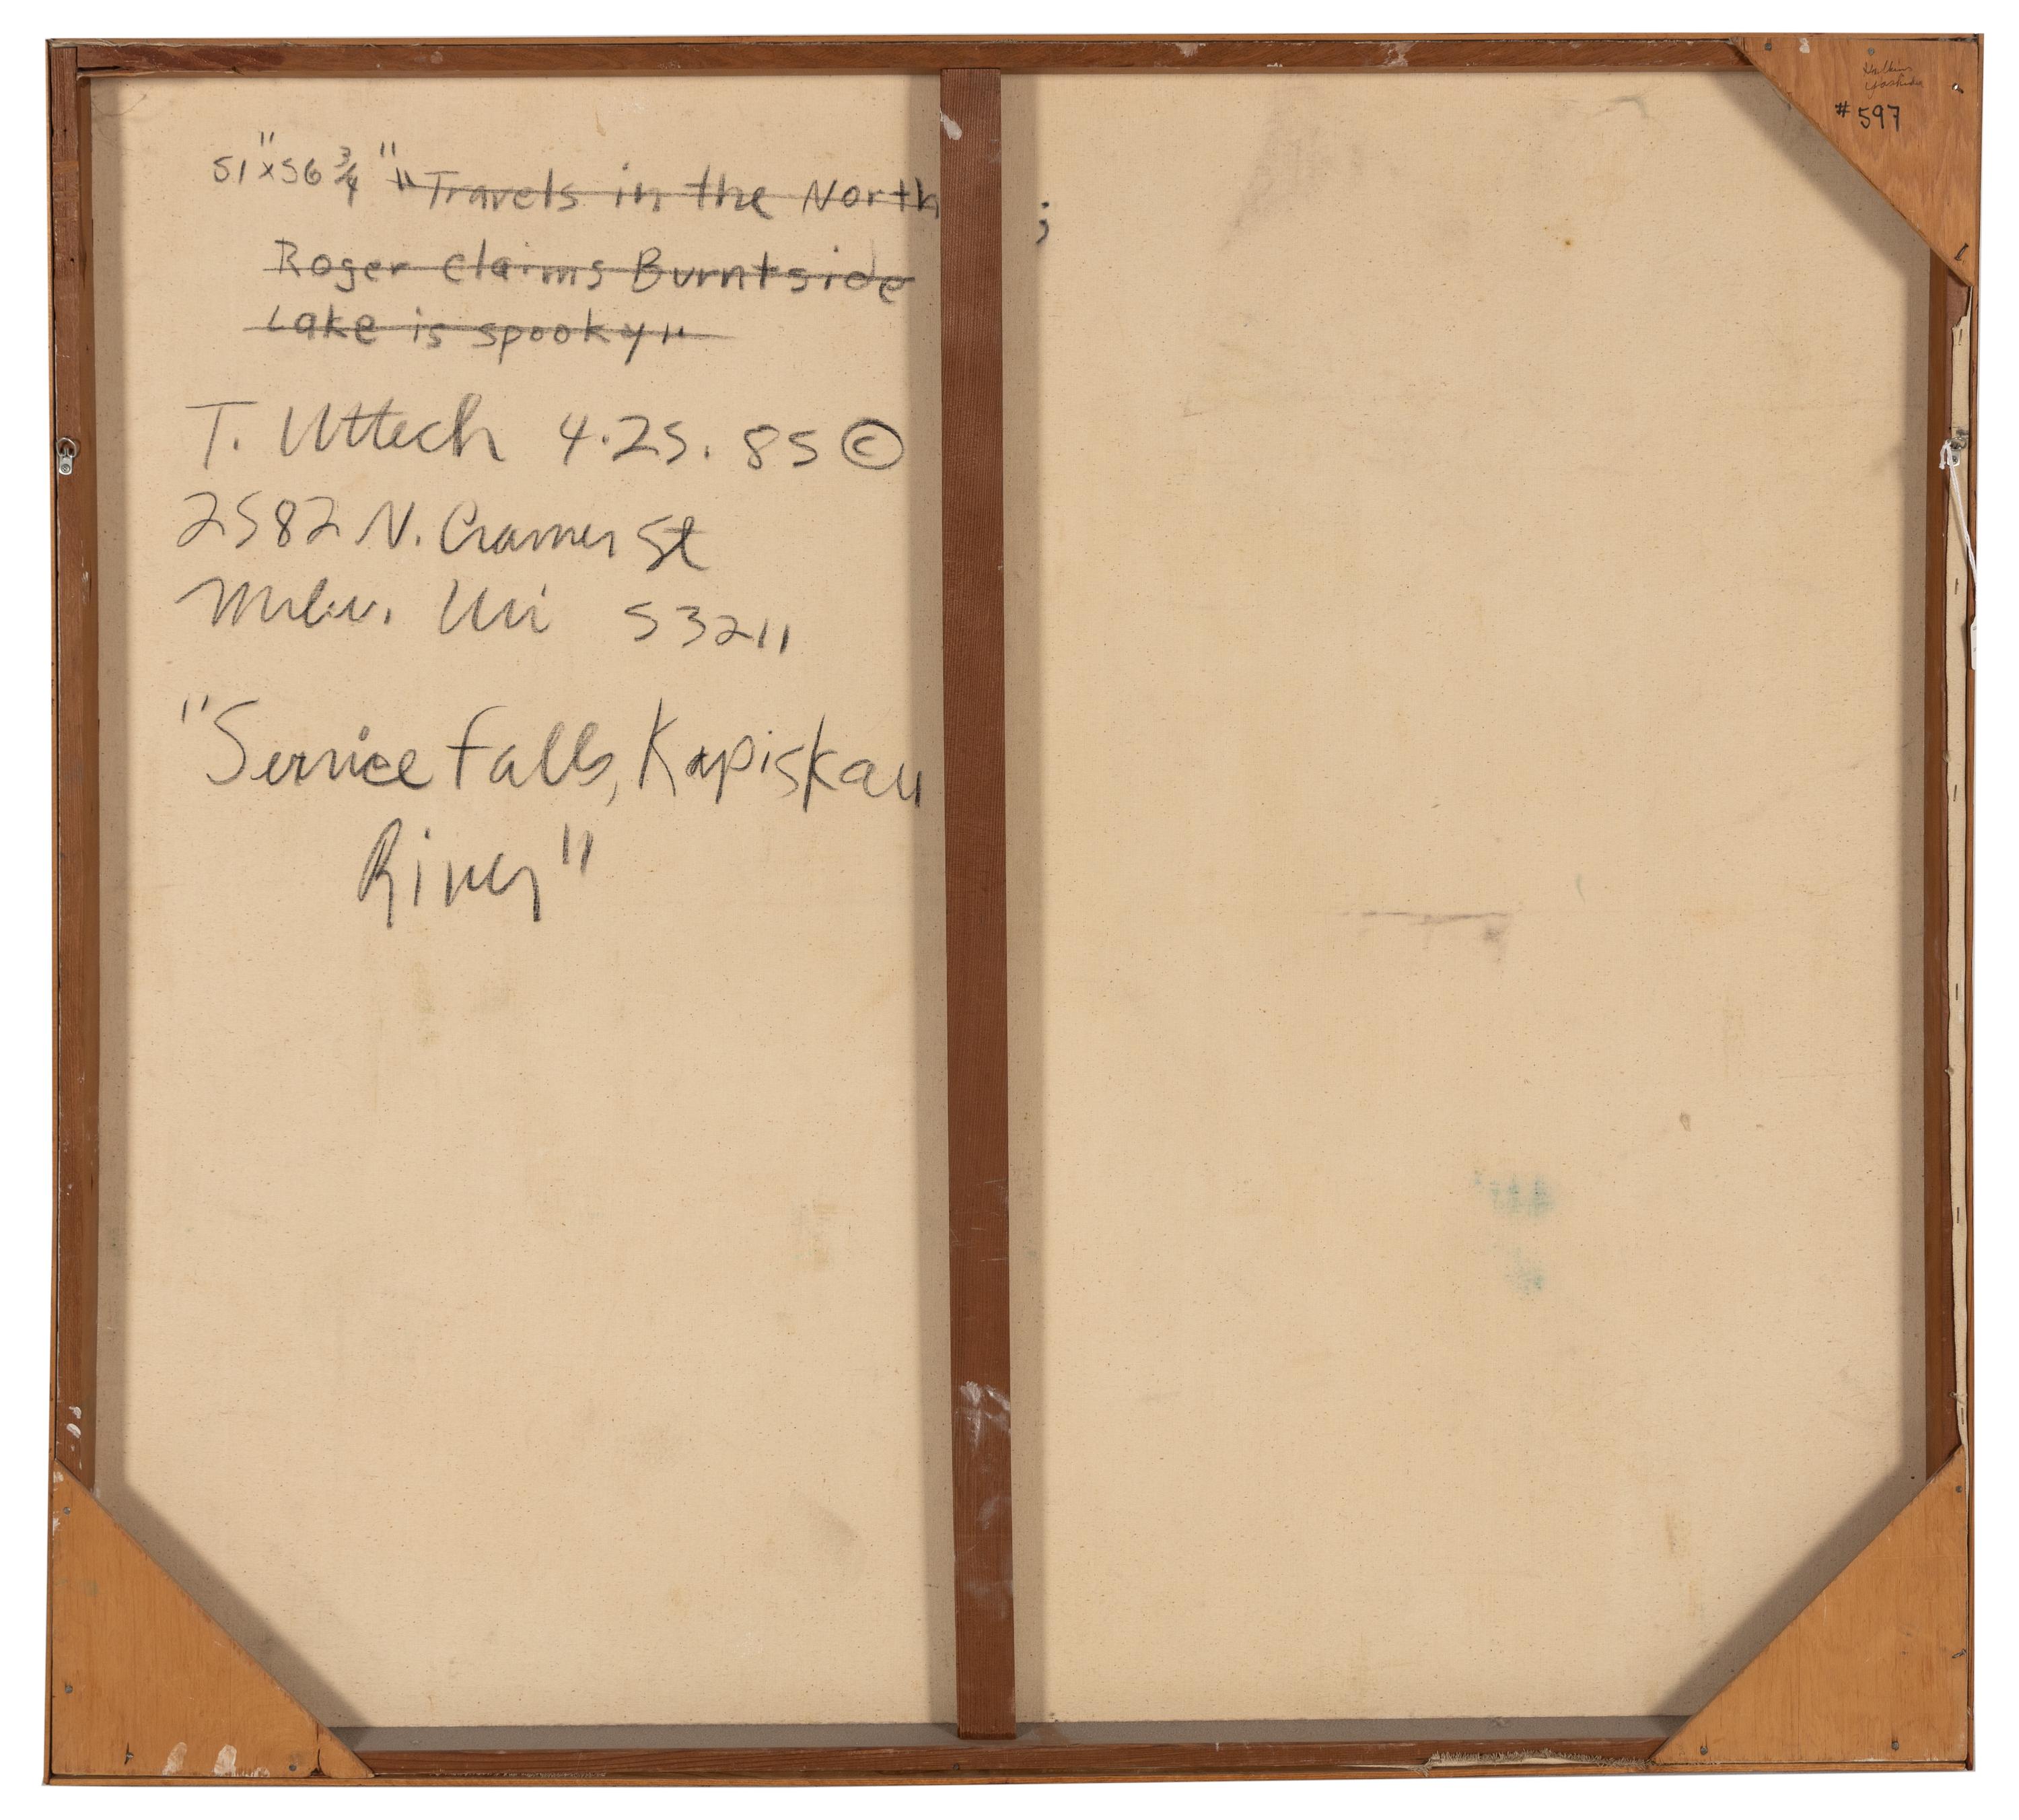 51" x 56 3/4" "Travels in the North ;
Roger claims Burntside
Lake is spooky"
T. Uttech 4.25.85 ©
2582 N. Cramer St
Milw. Wi 53211
"Service Falls, Kapiskau
River"
#597